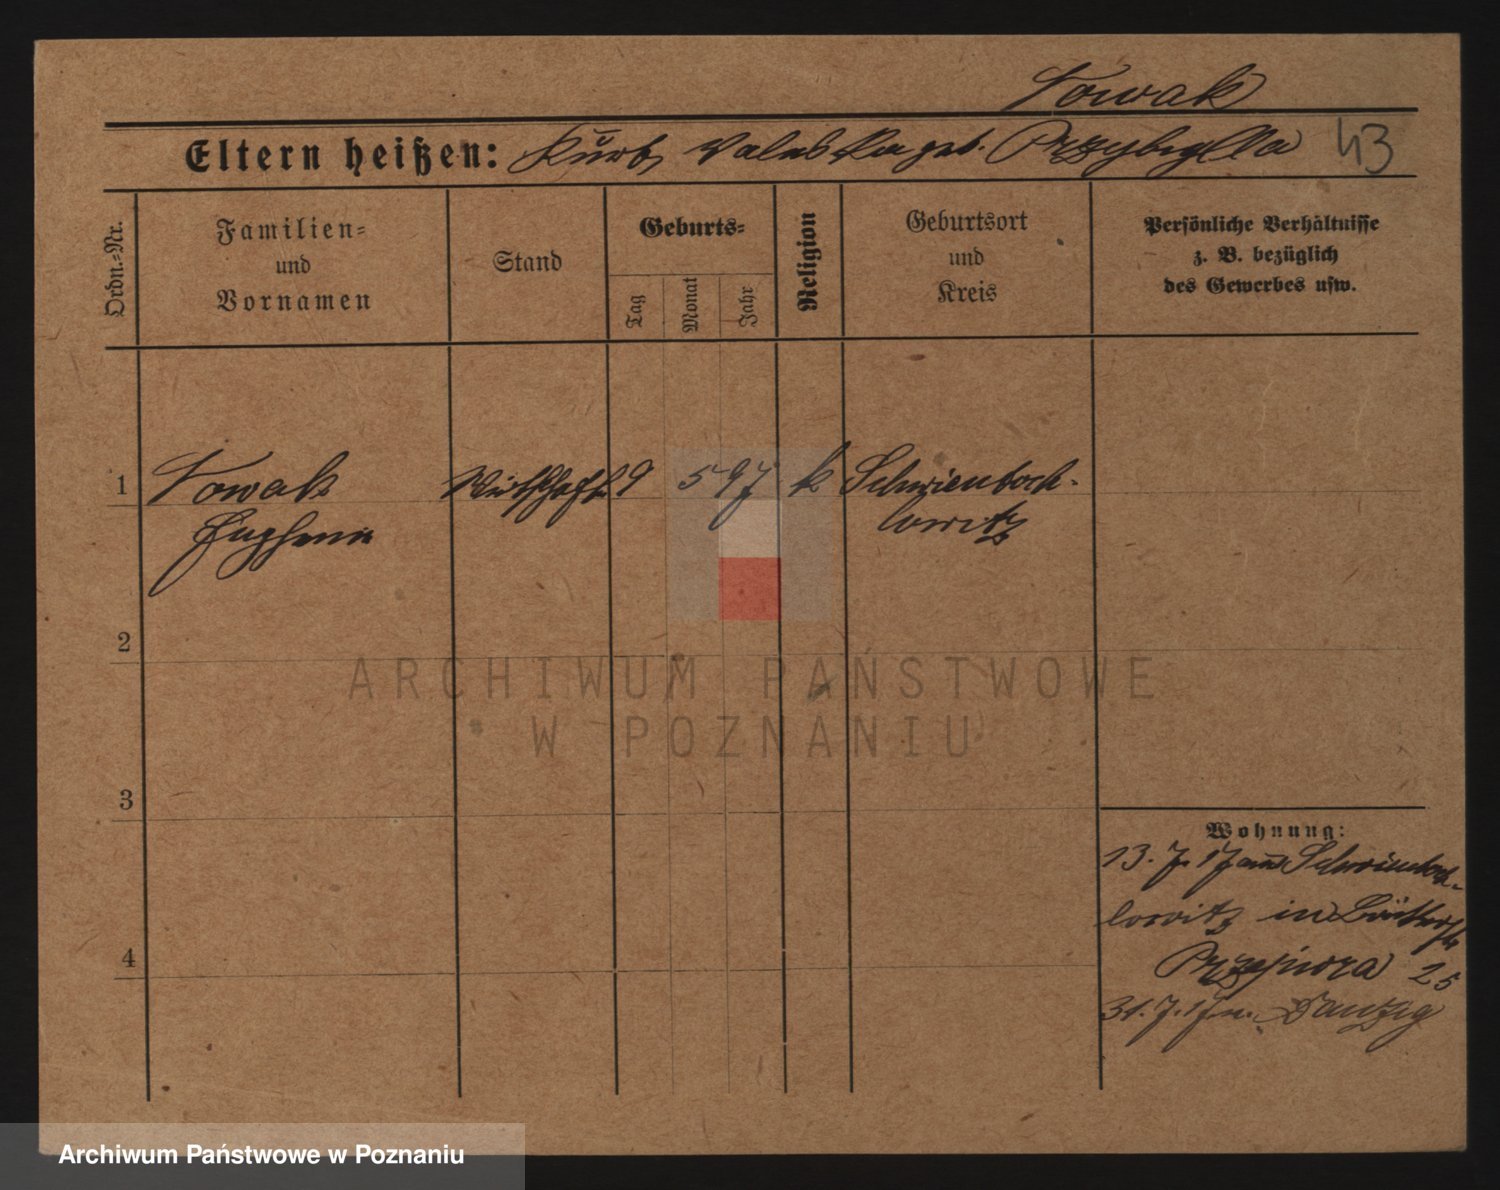 Nowak
Eltern heißen: Kurt, Valeska geb. Przybylla 43
Ordn.-Nr.
Familien-
und
Vornamen
Stand
Geburts-
Tag
Monat
Jahr
Religion
Geburtsort
und
Kreis
Persönliche Verhältnisse
z. B. bezüglich
des Gewerbes usw.
1 Nowak 9 5 97 k Schwientoch-
lowitz
2
3
4
Wohnung:
13. 7. 17 aus Schwientoch-
lowitz in
25
31. 7. 17 n. Danzig
ARCHIWUM PAŃSTWOWE
W POZNANIU
Archiwum Państwowe w Poznaniu